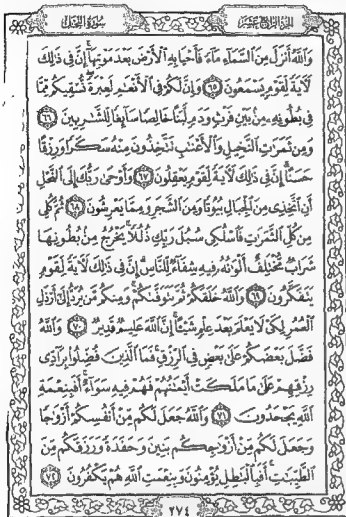 الجزء الرابع عشر
سورة النحل
وَاللَّهُ أَنزَلَ مِنَ السَّمَاءِ مَاءً فَأَحْيَا بِهِ الْأَرْضَ بَعْدَ مَوْتِهَا إِنَّ فِي ذَٰلِكَ
لَآيَةً لِّقَوْمٍ يَسْمَعُونَ ٦٥ وَإِنَّ لَكُمْ فِي الْأَنْعَامِ لَعِبْرَةً نُّسْقِيكُم مِّمَّا
فِي بُطُونِهِ مِن بَيْنِ فَرْثٍ وَدَمٍ لَّبَنًا خَالِصًا سَائِغًا لِّلشَّارِبِينَ ٦٦
وَمِن ثَمَرَاتِ النَّخِيلِ وَالْأَعْنَابِ تَتَّخِذُونَ مِنْهُ سَكَرًا وَرِزْقًا
حَسَنًا إِنَّ فِي ذَٰلِكَ لَآيَةً لِّقَوْمٍ يَعْقِلُونَ ٦٧ وَأَوْحَىٰ رَبُّكَ إِلَى النَّحْلِ
أَنِ اتَّخِذِي مِنَ الْجِبَالِ بُيُوتًا وَمِنَ الشَّجَرِ وَمِمَّا يَعْرِشُونَ ٦٨ ثُمَّ كُلِي
مِن كُلِّ الثَّمَرَاتِ فَاسْلُكِي سُبُلَ رَبِّكِ ذُلُلًا يَخْرُجُ مِن بُطُونِهَا
شَرَابٌ مُّخْتَلِفٌ أَلْوَانُهُ فِيهِ شِفَاءٌ لِّلنَّاسِ إِنَّ فِي ذَٰلِكَ لَآيَةً لِّقَوْمٍ
يَتَفَكَّرُونَ ٦٩ وَاللَّهُ خَلَقَكُمْ ثُمَّ يَتَوَفَّاكُمْ وَمِنكُم مَّن يُرَدُّ إِلَىٰ أَرْذَلِ
الْعُمُرِ لِكَيْ لَا يَعْلَمَ بَعْدَ عِلْمٍ شَيْئًا إِنَّ اللَّهَ عَلِيمٌ قَدِيرٌ ٧٠ وَاللَّهُ
فَضَّلَ بَعْضَكُمْ عَلَىٰ بَعْضٍ فِي الرِّزْقِ فَمَا الَّذِينَ فُضِّلُوا بِرَادِّي
رِزْقِهِمْ عَلَىٰ مَا مَلَكَتْ أَيْمَانُهُمْ فَهُمْ فِيهِ سَوَاءٌ أَفَبِنِعْمَةِ
اللَّهِ يَجْحَدُونَ ٧١ وَاللَّهُ جَعَلَ لَكُم مِّنْ أَنفُسِكُمْ أَزْوَاجًا
وَجَعَلَ لَكُم مِّنْ أَزْوَاجِكُم بَنِينَ وَحَفَدَةً وَرَزَقَكُم مِّنَ
الطَّيِّبَاتِ أَفَبِالْبَاطِلِ يُؤْمِنُونَ وَبِنِعْمَتِ اللَّهِ هُمْ يَكْفُرُونَ ٧٢
٢٧٤